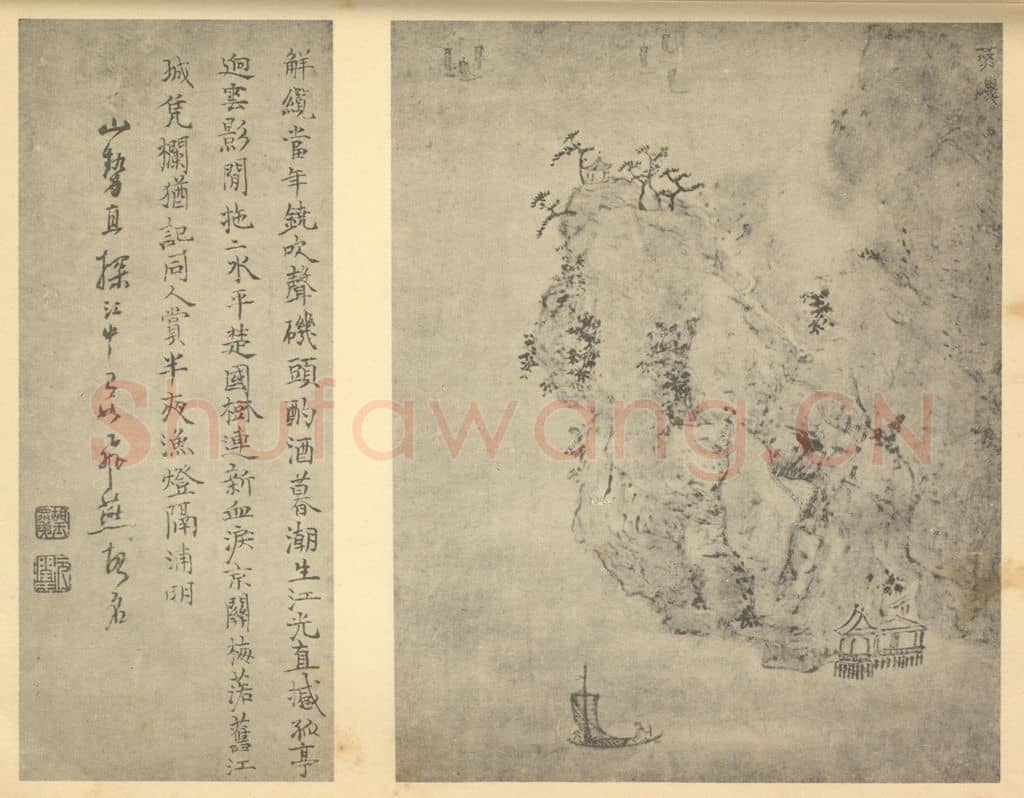 燕磯
觧纜當年鐃吹聲磯頭酌酒暮潮生江光直撼孤亭
迥雲影閒拖二水平楚國樹連新血淚京關梅落舊江
城凭攔猶記同人賞半夜漁燈隔浦明
山勢直探江中有如飛燕故名
Shufawang.CN